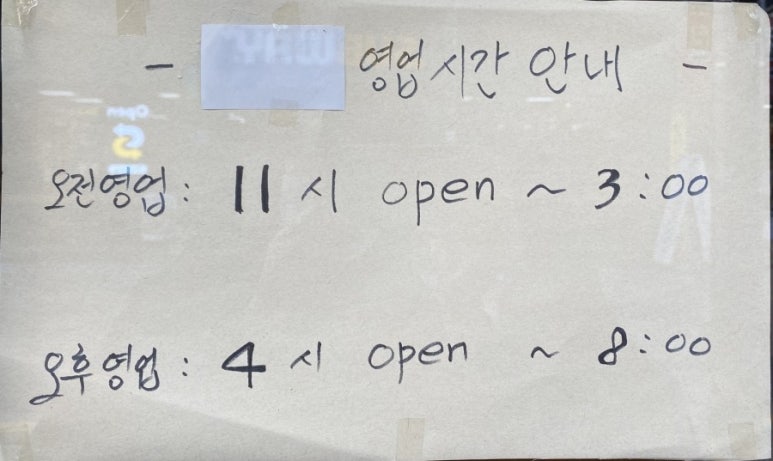 - 영업시간 안내 -
오전영업 : 11시 open ~ 3:00
오후영업 : 4시 open ~ 8:00